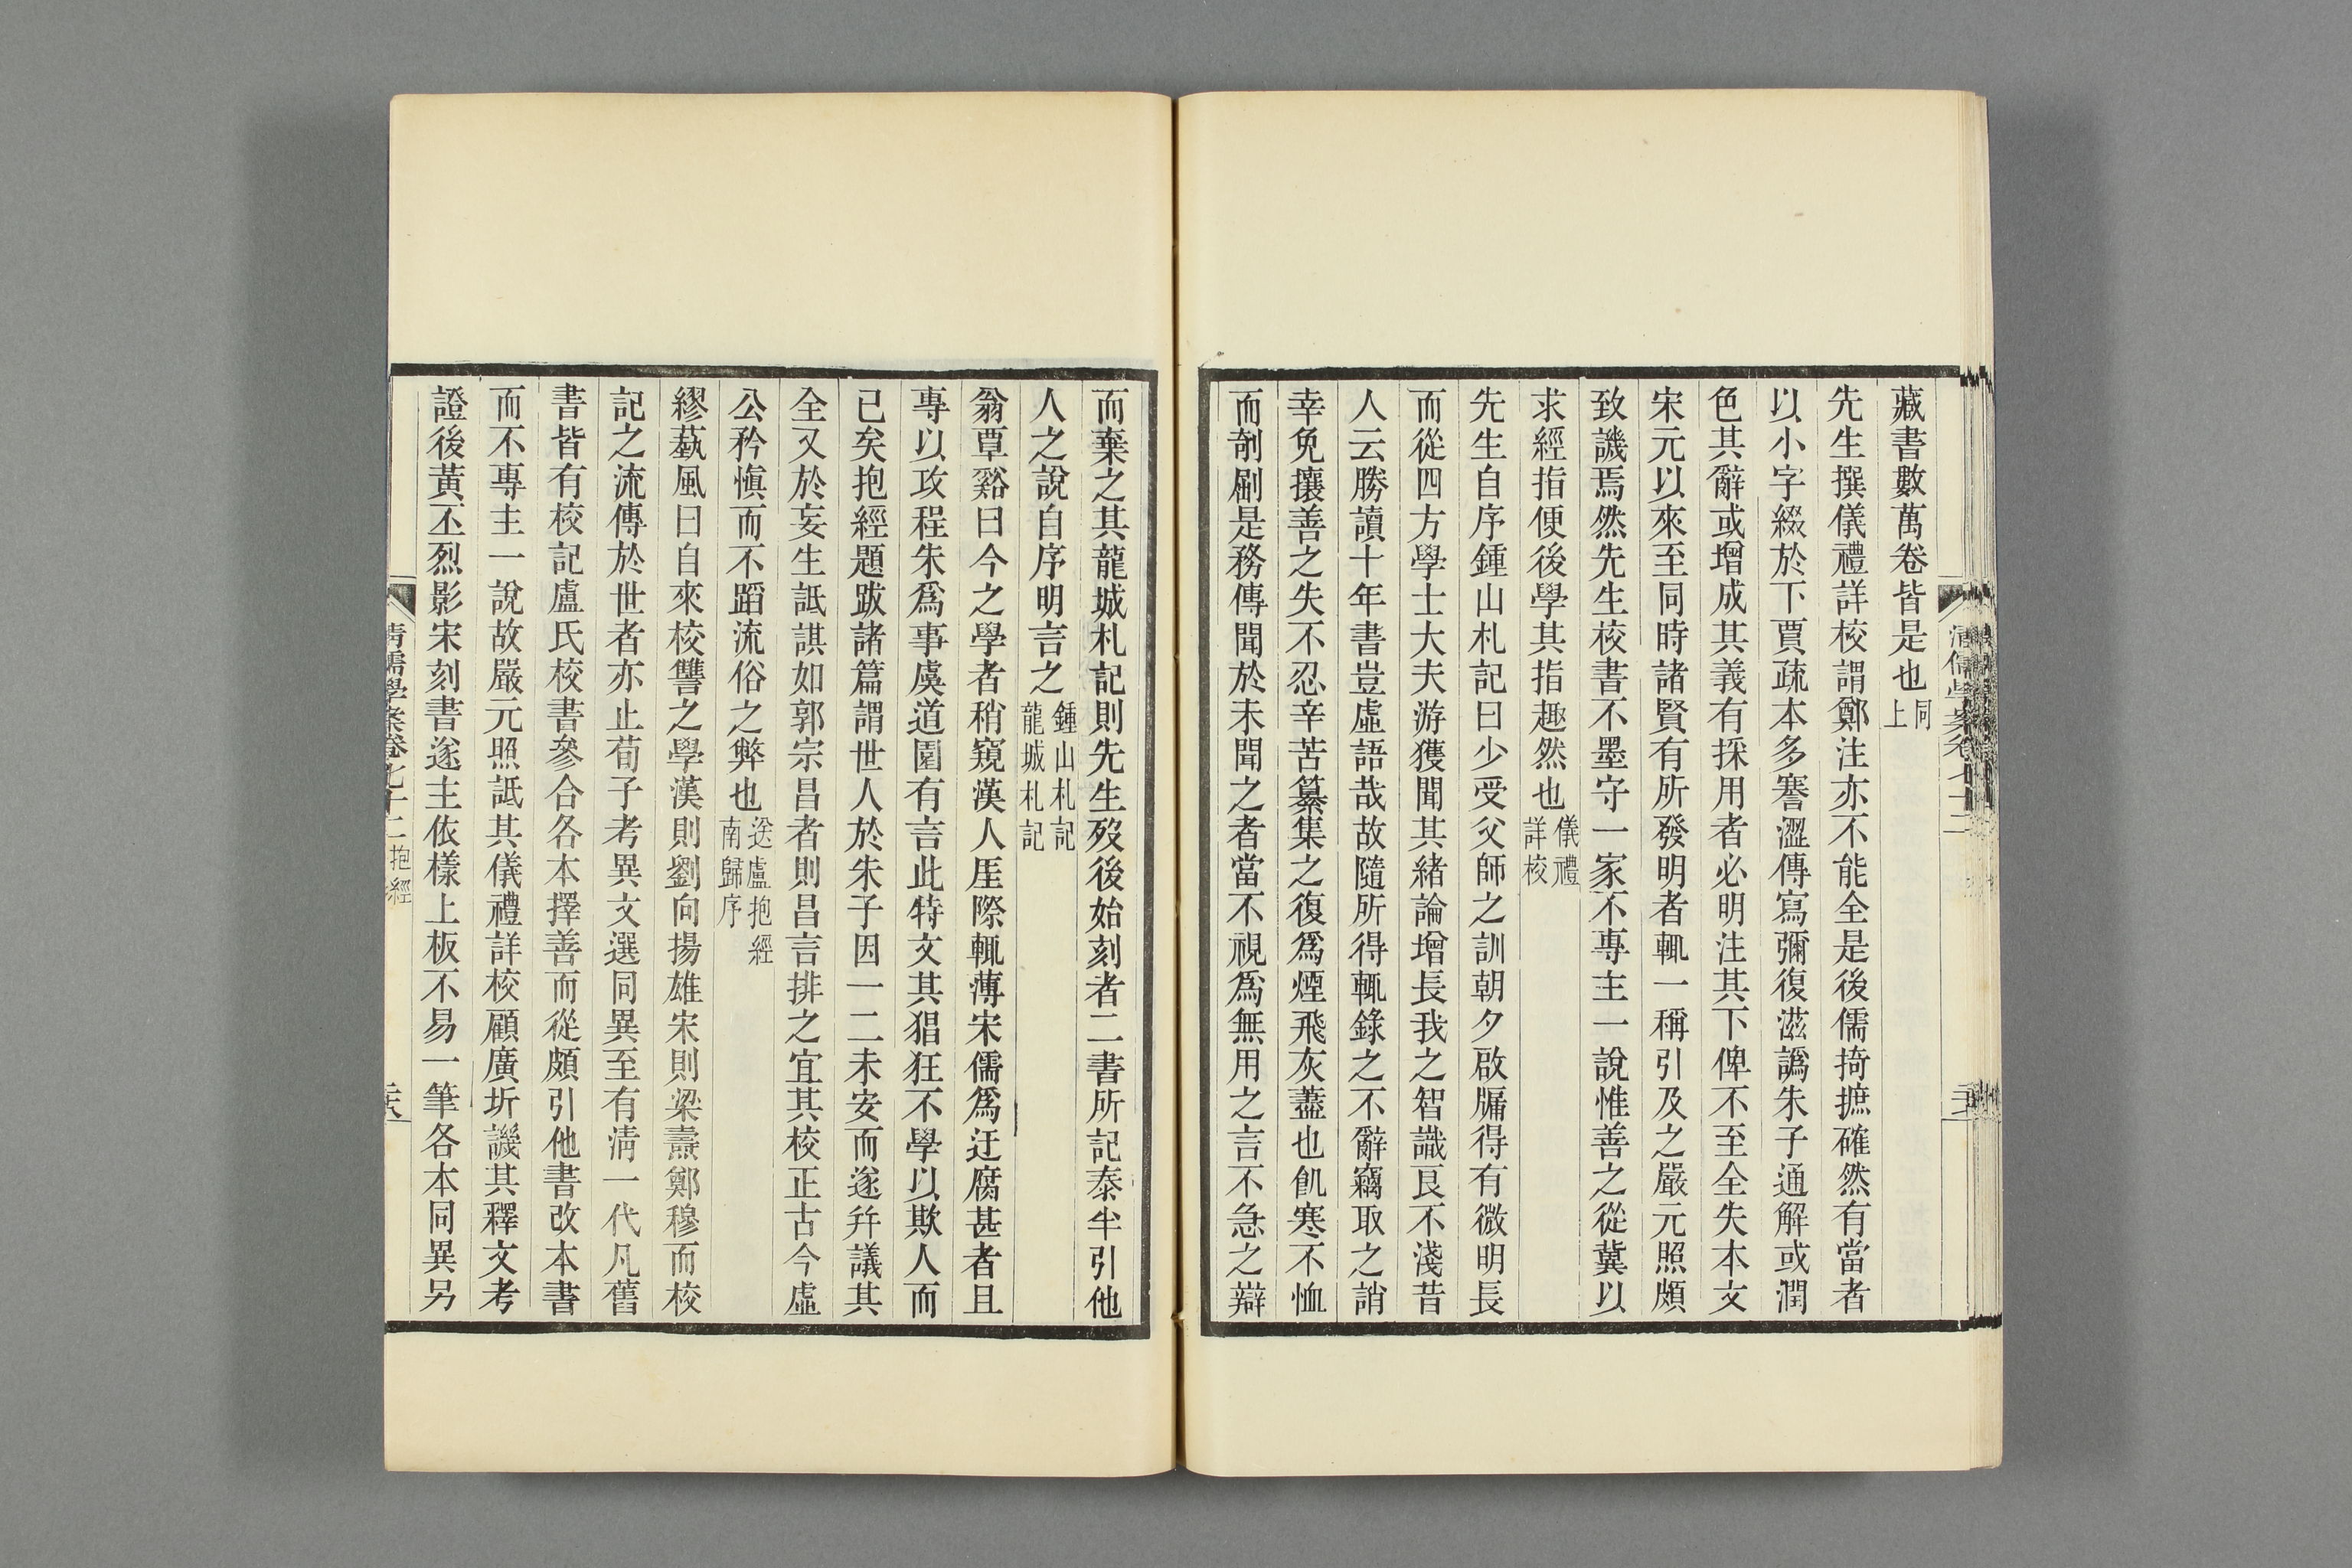 藏書數萬卷皆是也同上
先生撰儀禮詳校謂鄭注亦不能全是後儒掎摭確然有當者
以小字綴於下賈疏本多謇澀傳寫彌復滋譌朱子通解或潤
色其辭或增成其義有採用者必明注其下俾不至全失本文
宋元以來至同時諸賢有所發明者輒一稱引及之嚴元照頗
致譏焉然先生校書不墨守一家不專主一說惟善之從冀以
求經指便後學其指趣然也儀禮詳校
先生自序鍾山札記曰少受父師之訓朝夕啟牖得有微明長
而從四方學士大夫游獲聞其緒論增長我之智識良不淺昔
人云勝讀十年書豈虛語哉故隨所得輒錄之不辭竊取之誚
幸免攘善之失不忍辛苦纂集之復爲煙飛灰藎也飢寒不恤
而剞劂是務傳聞於未聞之者當不視爲無用之言不急之辯
而棄之其龍城札記則先生歿後始刻者二書所記泰半引他
人之說自序明言之鍾山札記龍城札記
翁覃谿曰今之學者稍窺漢人厓際輒薄宋儒爲迂腐甚者且
專以攻程朱爲事虞道園有言此特文其猖狂不學以欺人而
已矣抱經題跋諸篇謂世人於朱子因一二未安而遂幷議其
全又於妄生詆諆如郭宗昌者則昌言排之宜其校正古今虛
公矜愼而不蹈流俗之弊也送盧抱經南歸序
繆蓺風曰自來校讐之學漢則劉向揚雄宋則梁燾鄭穆而校
記之流傳於世者亦止荀子考異文選同異至有淸一代凡舊
書皆有校記盧氏校書參合各本擇善而從頗引他書改本書
而不專主一說故嚴元照詆其儀禮詳校顧廣圻譏其釋文考
證後黃丕烈影宋刻書遂主依樣上板不易一筆各本同異另
清儒學案卷七十二 抱經